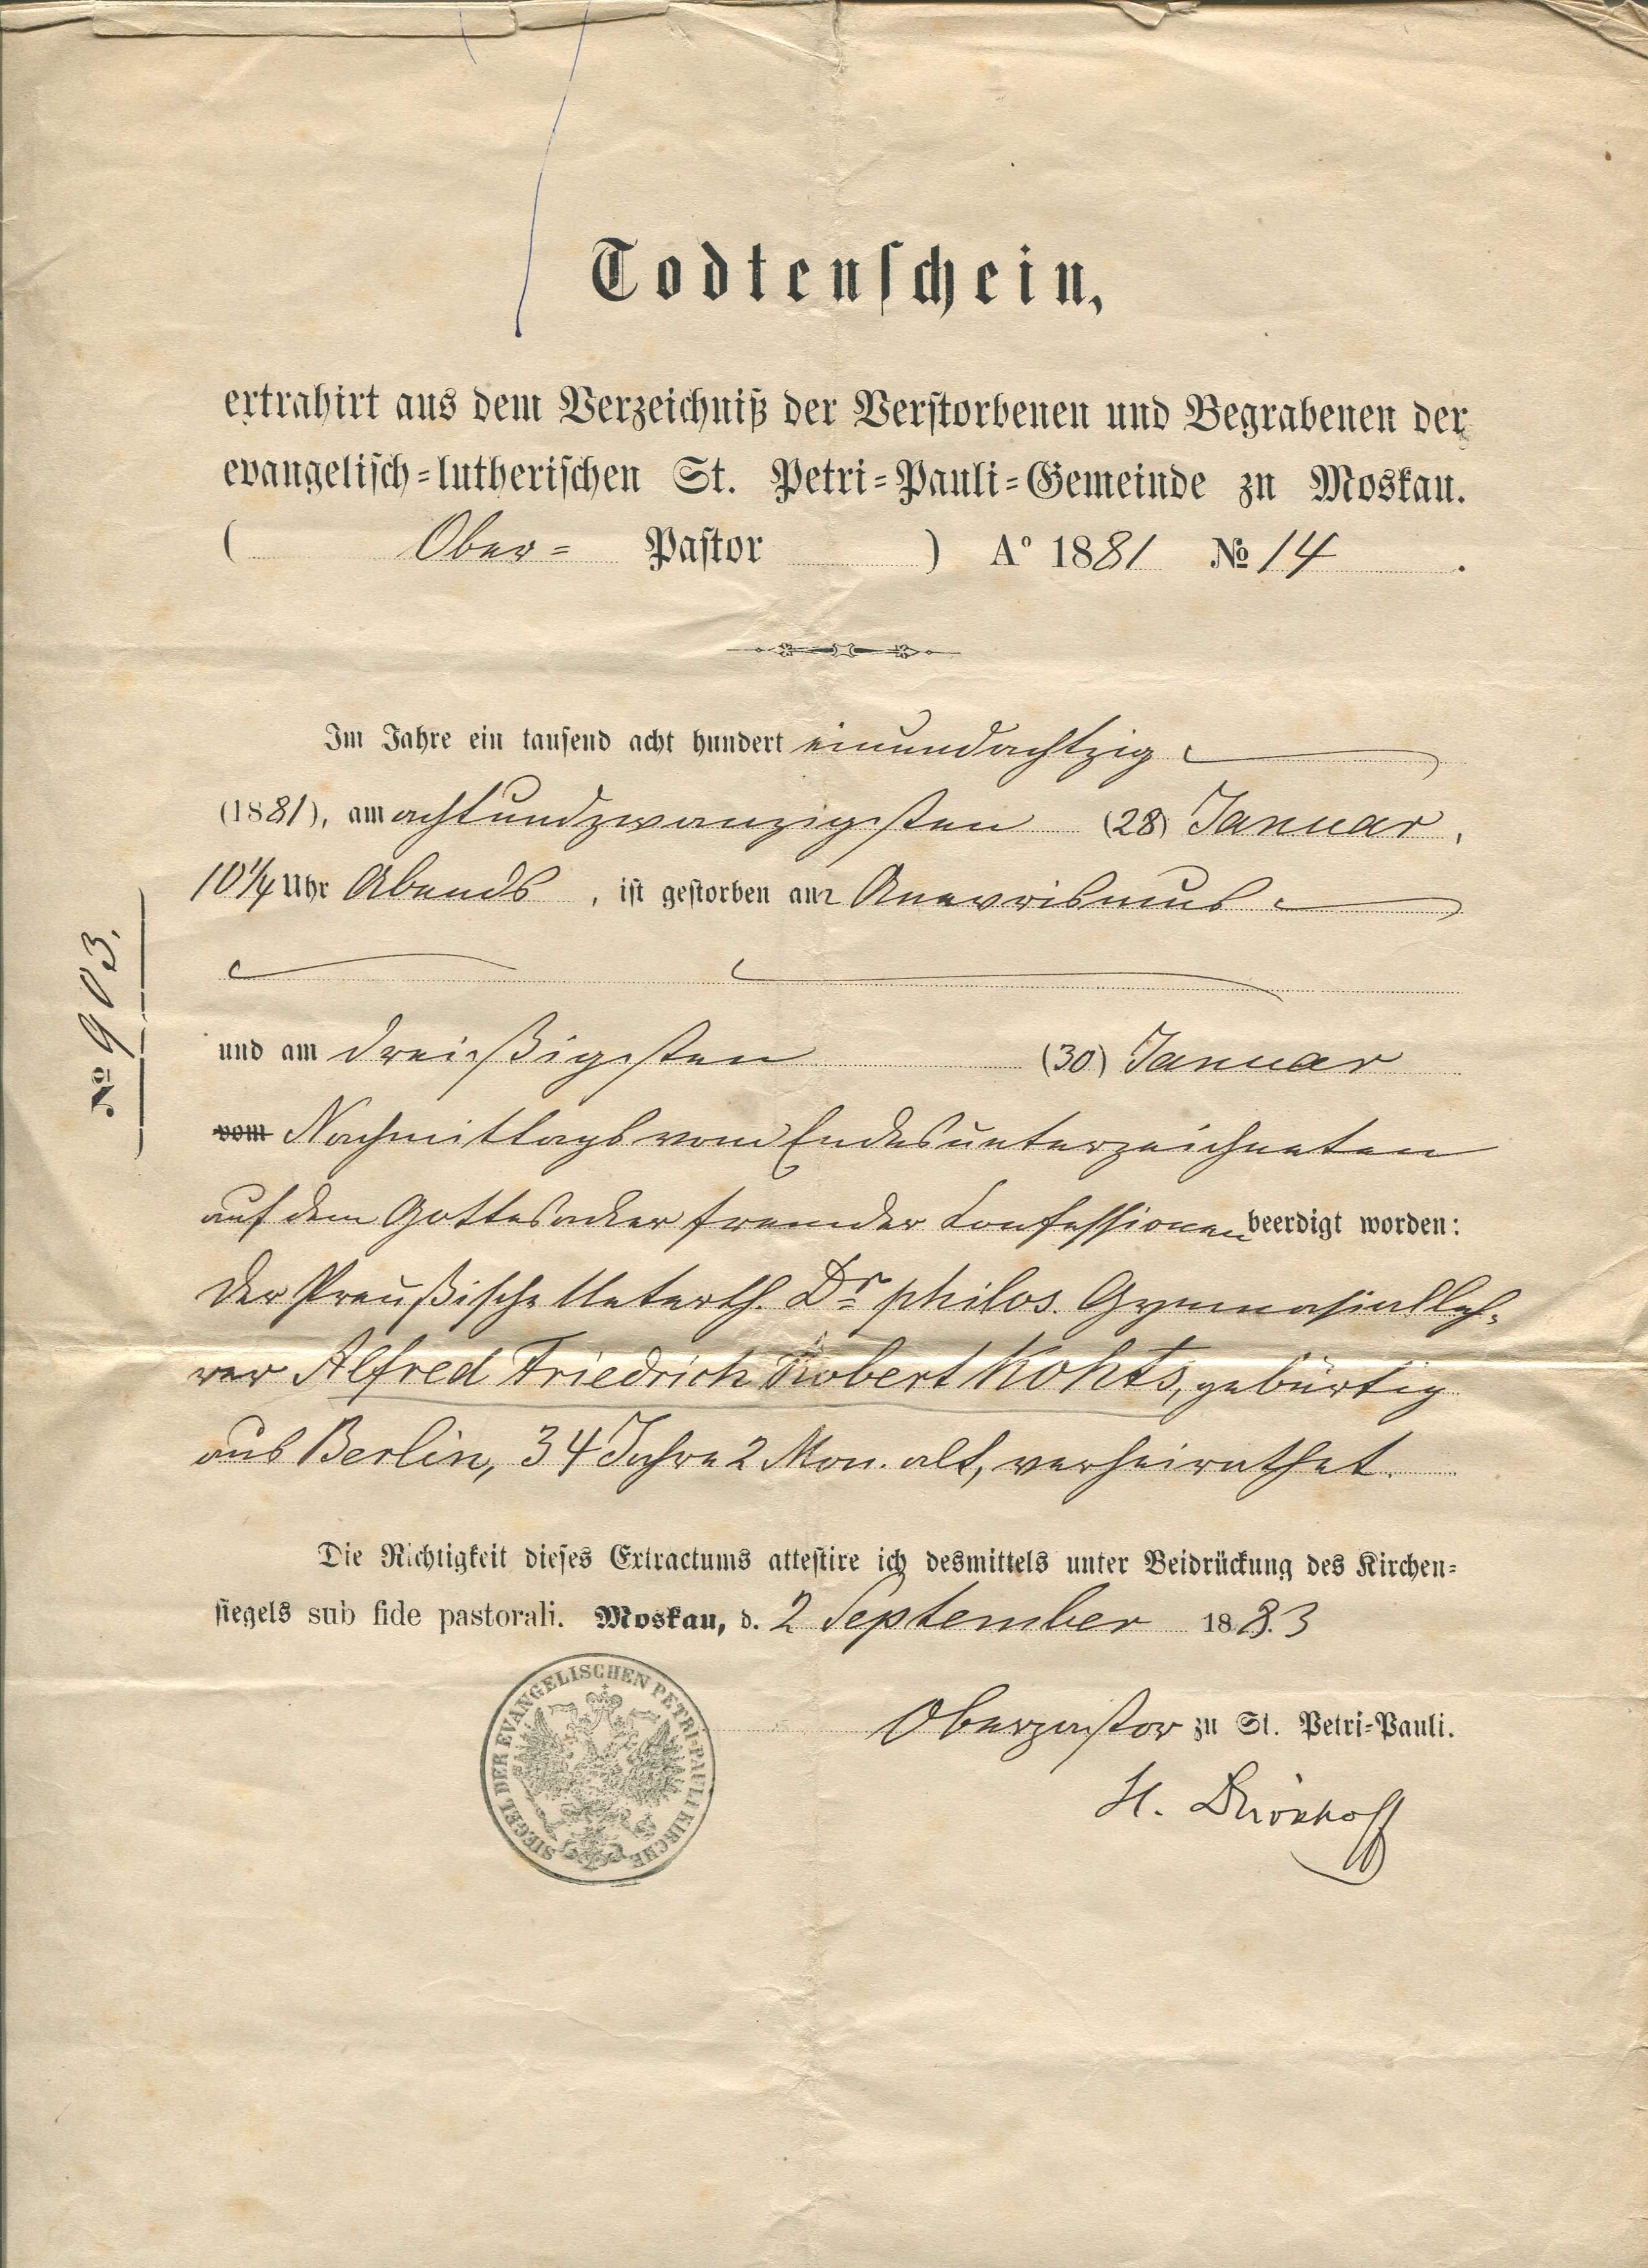 Todtenschein,
extrahirt aus dem Verzeichniß der Verstorbenen und Begrabenen der
evangelisch=lutherischen St. Petri=Pauli=Gemeinde zu Moskau.
( Ober= Pastor ) A° 1881 № 14 .
Im Jahre ein tausend acht hundert einundachtzig
(1881), am achtundzwanzigsten (28) Januar,
10¼ Uhr Abends, ist gestorben am Anevrismus
und am dreißigsten (30) Januar
vom Nachmittags vom Endesunterzeichneten
auf dem Gottesacker fremder Confessionen beerdigt worden:
Der Preußische Unterth. Dr philos. Gymnasialleh-
rer Alfred Friedrich Robert Kohts, gebürtig
aus Berlin, 34 Jahre 2 Mon. alt, verheirathet.
Die Richtigkeit dieses Extractums attestire ich desmittels unter Beidrückung des Kirchen=
siegels sub fide pastorali. Moskau, d. 2 September 1883
Oberpastor zu St. Petri=Pauli.
H. Dieckhoff
№ 903.
SIEGEL DER EVANGELISCHEN PETRI-PAULI KIRCHE